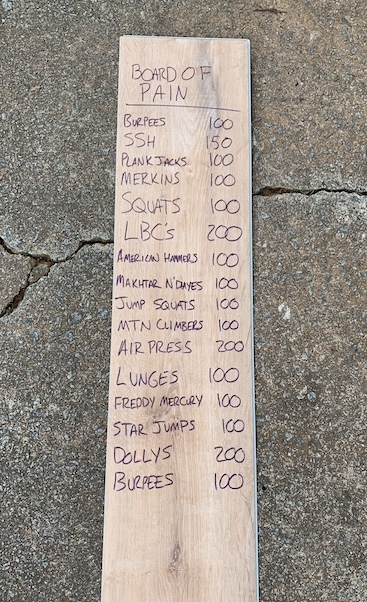 BOARD OF
PAIN
BURPEES 100
SSH 150
PLANK JACKS 100
MERKINS 100
SQUATS 100
LBC's 200
AMERICAN HAMMERS 100
MAKHTAR N'DIAYES 100
JUMP SQUATS 100
MTN CLIMBERS 100
AIR PRESS 200
LUNGES 100
FREDDY MERCURY 100
STAR JUMPS 100
DOLLYS 200
BURPEES 100